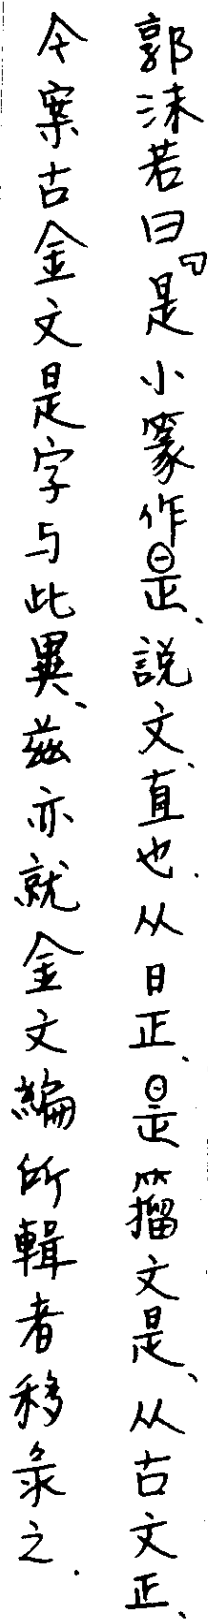 郭沫若曰『是小篆作昰、説文、直也.从日正、昰籀文是、从古文正、
今案古金文是字与此異、茲亦就金文編所輯者移录之.